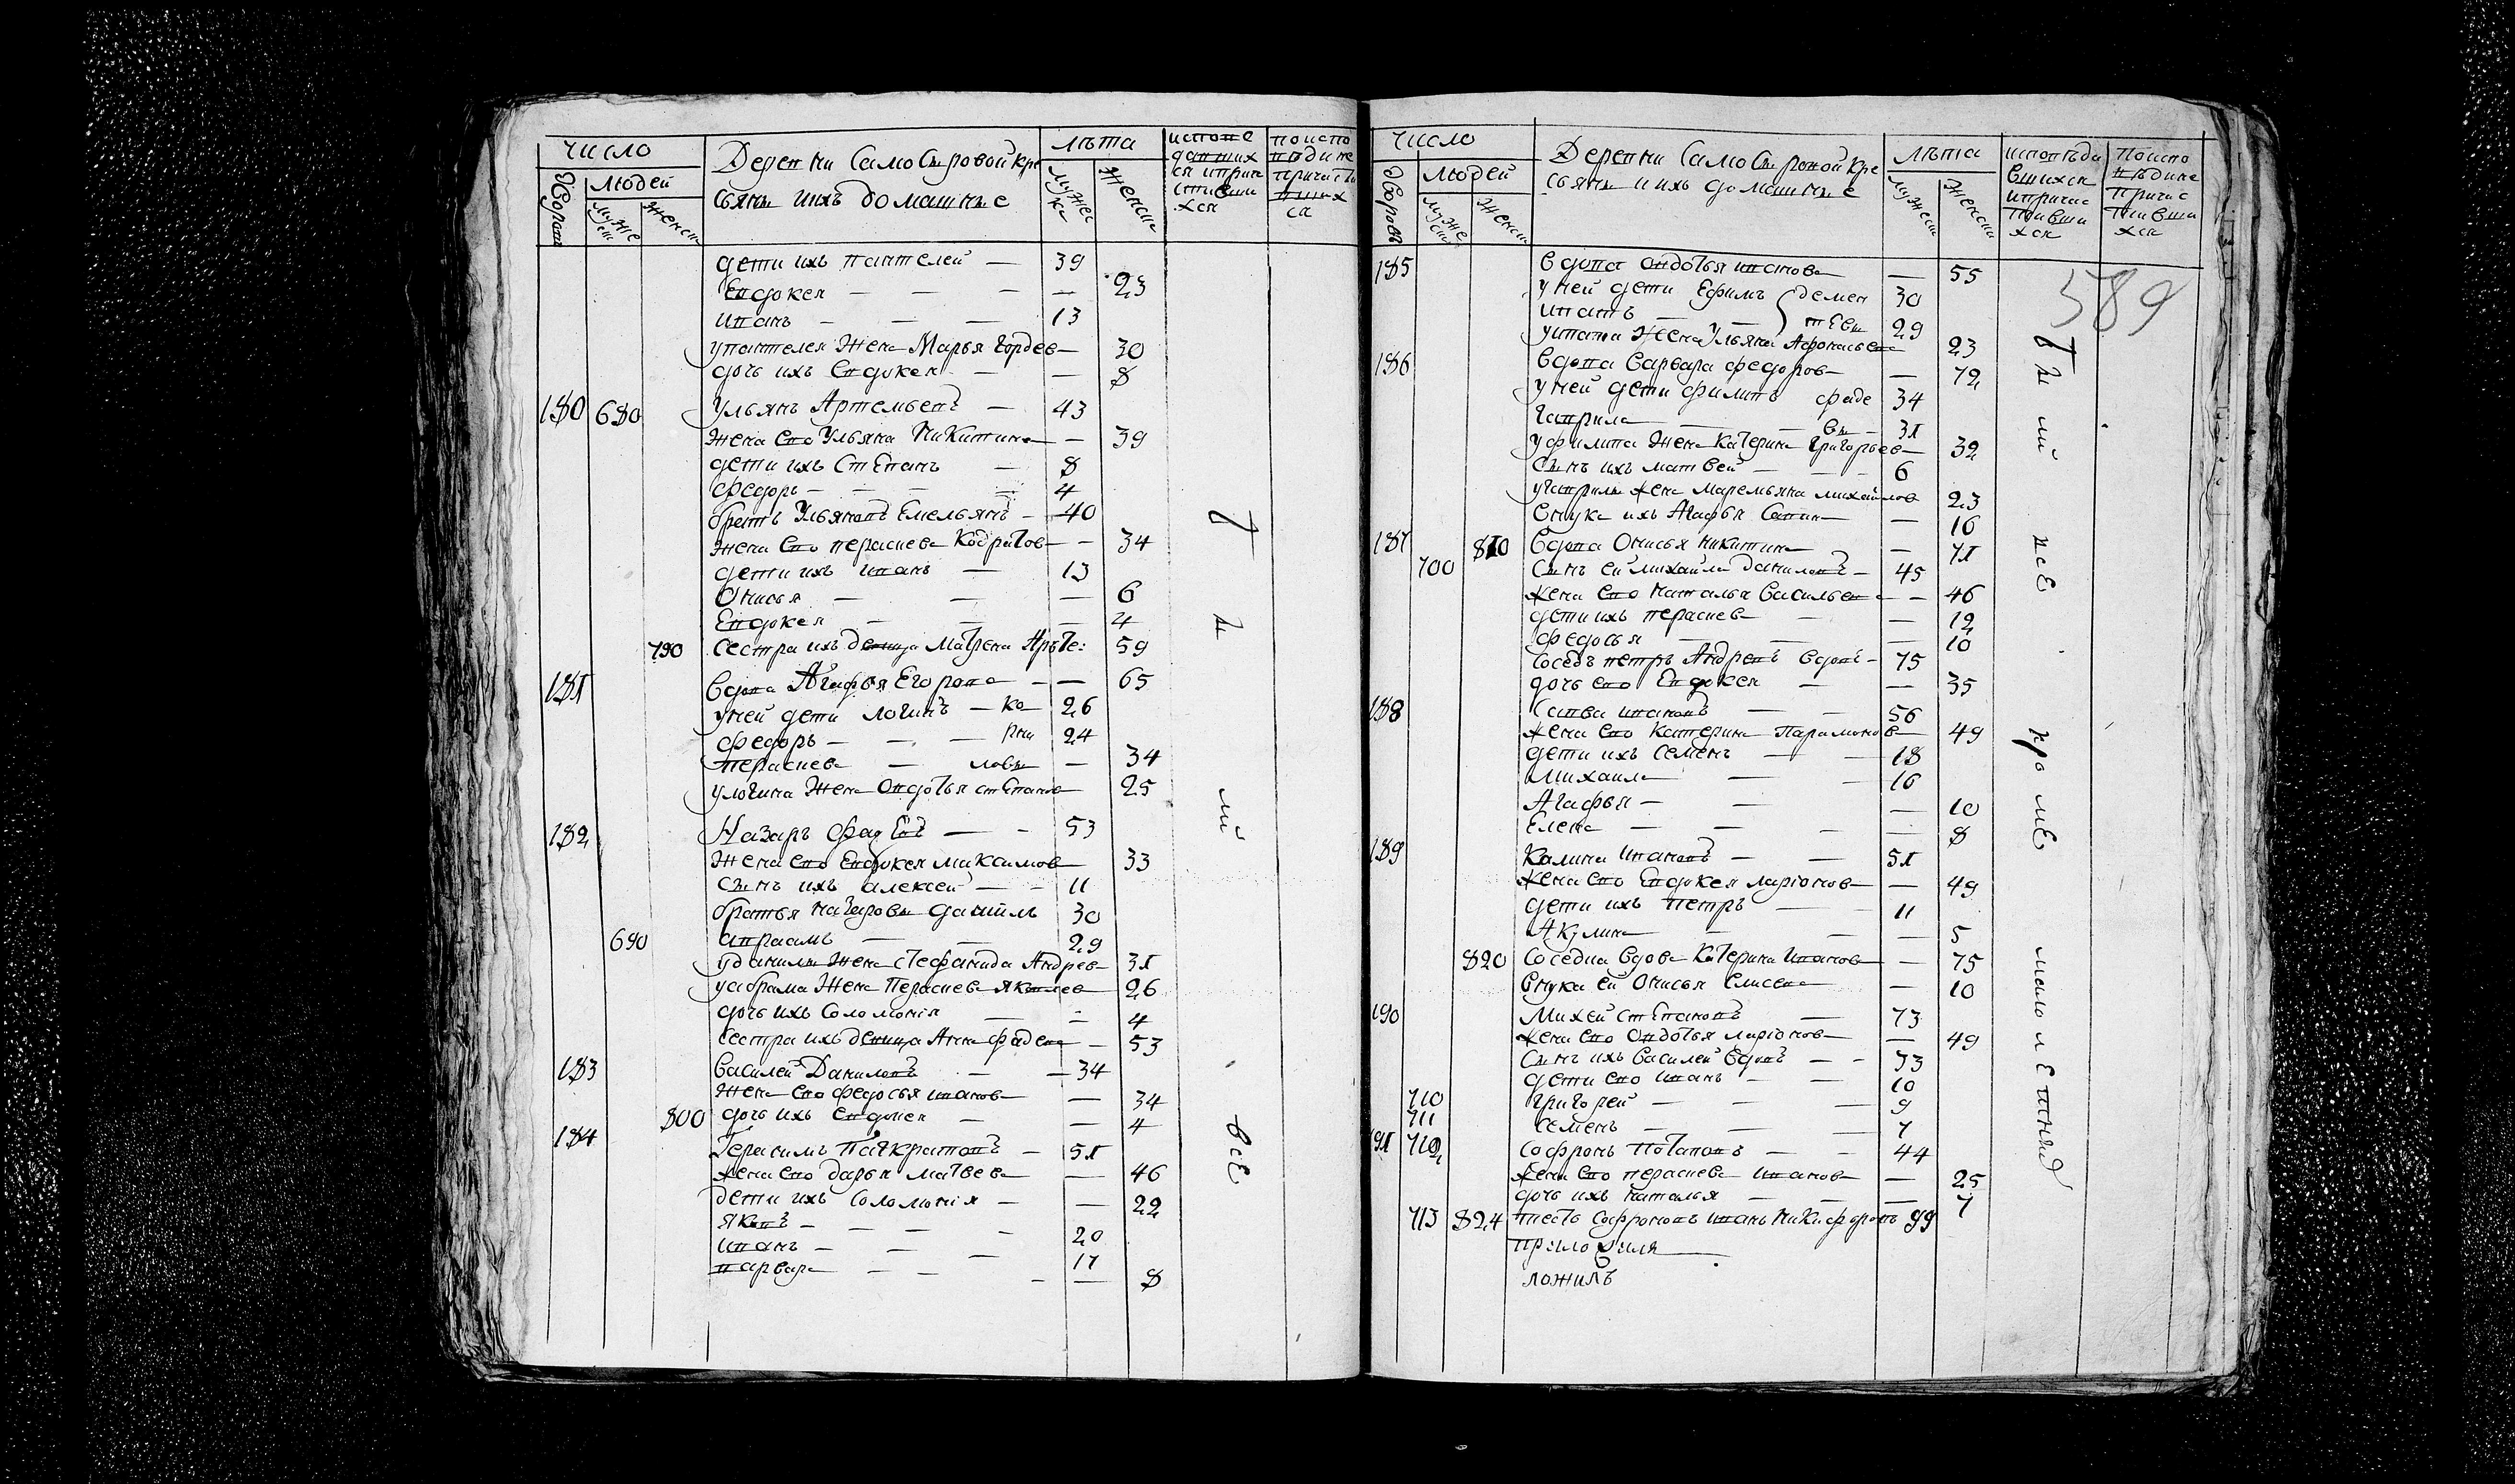 число
Деревни Самосѣровой кре
лѣта
людей
сьянѣ ихъ домашнѣе
Дворов
муже
женск
мужес
ка
женски
испове
давших
ся и прич
стивши
хся
поиспо
вѣдине
причасти
вших
ся
дети ихъ пантелей — 39
Евдокея — — — — 23
иванъ — — — 13
у пантелея жена Марья Гордев — 30
дочь ихъ Евдокея — — 8
180 680 Ульянъ Артемьевъ — 43
жена ево Ульяна Никитина — — 39
дети ихъ Степанъ — 8
федоръ — — — 4
братъ Ульяновъ Емельянъ — 40
жена ево перасчева Кодратов — — 34
дети ихъ иванъ — 13
Онисья — — — 6
Евдокея — — — 4
790 сестра ихъ девица Матрена Арьте: 59
181 вдова Агафья Егорова — — 65
у ней дети логинъ — ка 26
федоръ — — — рни 24
перасчева — ловы — 34
у логина жена Овдотья степанов 25
182 Назаръ фадѣевъ — — 53
жена ево Евдокея максимов 33
сынъ ихъ алексей — — 11
братья назаровы данила 30
690 авраамъ — — 29
у данилы жена стефанида Андрев 31
у абрама жена Перасчева яковлев 26
дочь ихъ соломонія — — 4
сестра ихъ девица Анна фадеева — 53
183 василей Даниловъ — — 34
жена ево федосья иванов — 34
800 дочь ихъ евдокея — — 4
184 Герасимъ Панкратовъ — 51
жена ево дарья матвеева — 46
дети ихъ соломонія — — 22
яковъ — — — — 20
иванъ — — — 17
варвара — — — — 8
Тѣ ий всЕ
число
Деревни Самосѣровой кре
лѣта
людей
сьянѣ и ихъ домашнѣе
Дворовъ
муже
женск
мужеск
женски
исповѣда
вшихся
и причас
тивши
хся
поиспо
вѣдине
причас
тивши
хся
589
185 вдова овдотья иванова — 55
у ней дети Ефимъ демен 30
игнатъ — — тЕвы 29
у игната жена Ульяна Афонасьева 23
186 вдова варвара федоров — — 72
у ней дети филипъ фаде 34
Гаврила — — вы — 31
у филипа жена катерина Григорьев — 32
сынъ ихъ матвей — — — 6
у гаврилы жена маремьяна михайлов 23
внука ихъ Агафья Савин — 16
187 810 вдова Онисья никитина — 71
700 сынъ ей михайла даниловъ — 45
жена ево наталья васильева — — 46
дети ихъ перасчева — — 12
федосья — — — 10
соседъ петръ Андревъ вдовъ — 75
дочь ево Евдокея — — 35
188 савва ивановъ — — 56
жена ево катерина Парамонов — 49
дети ихъ семенъ — — 18
михаила — — 16
Агафья — — — 10
Елена — — — — 8
189 Калина ивановъ — — 51
жена ево Евдокея ларіонов — — 49
дети ихъ петръ — — 11
Акулина — — — 5
820 соседка вдова катерина иванов — 75
внука ей Онисья Елисева — 10
190 михей степановъ — 73
жена ево Овдотья ларіонов — — 49
сынъ ихъ василей вдовъ — — 33
дети ево иванъ — — 10
710 григорей — — — 9
711 семенъ — — — 7
191 712 софронъ потаповъ — — 44
жена ево перасчева иванов — — 25
дочь ихъ наталья — — — 7
713 824 тесть софроновъ иванъ никифоровъ 99
приложилъ
ложилъ
Тѣ ий всЕ кромЕ малолЕтныхъ